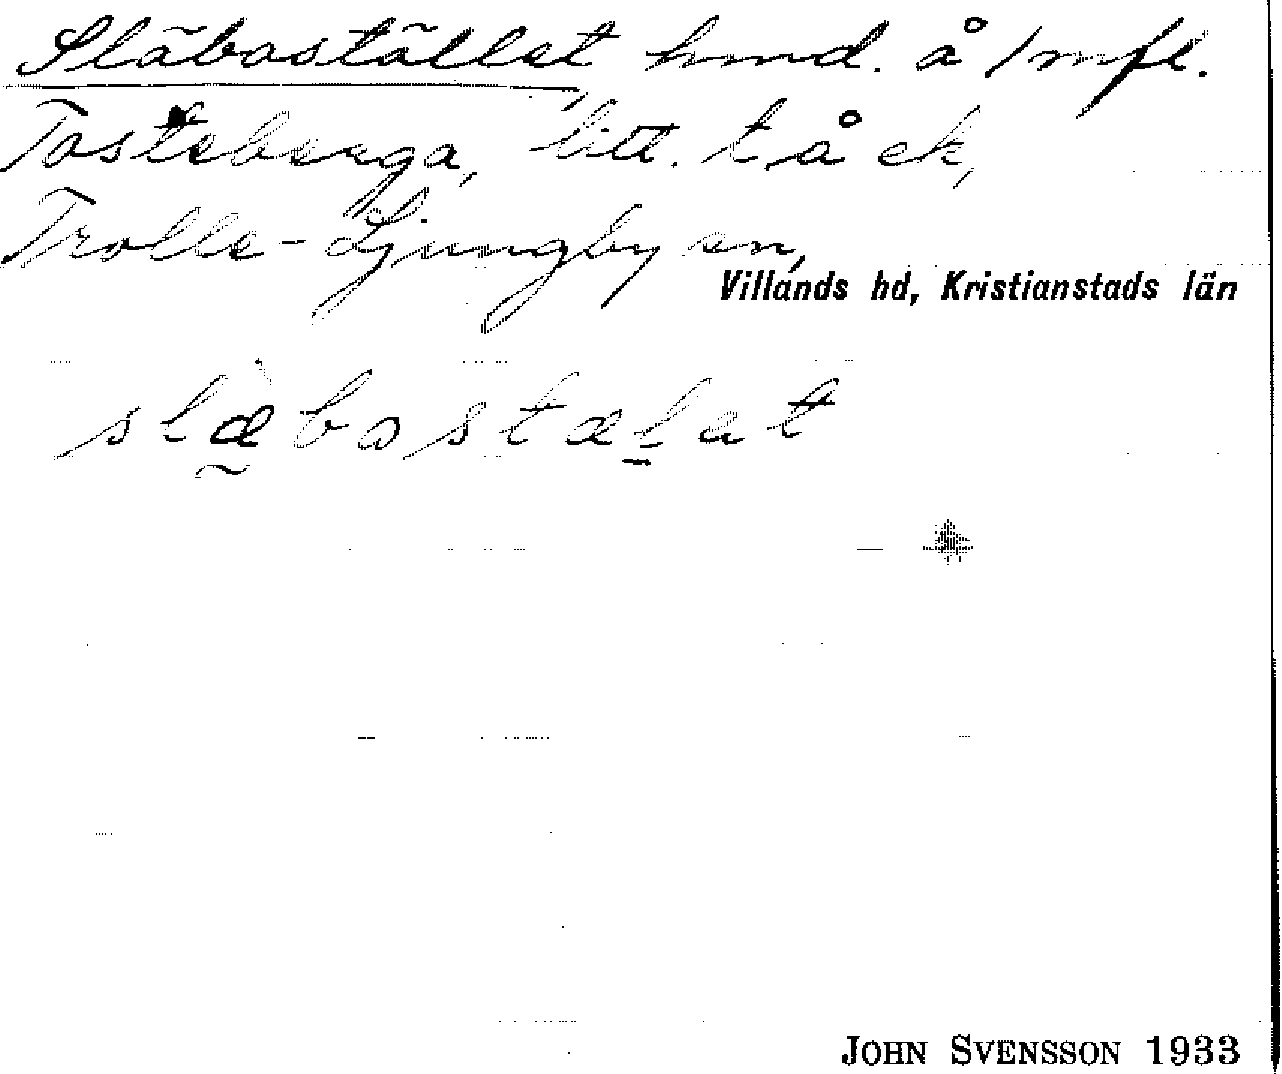 Släbostället, hmd. å 1/mfl.
Tosteberga, litt. t, å ek,
Trolle-Ljungby sn,
Villands hd, Kristianstads län
slæbostælat
JOHN SVENSSON 1933